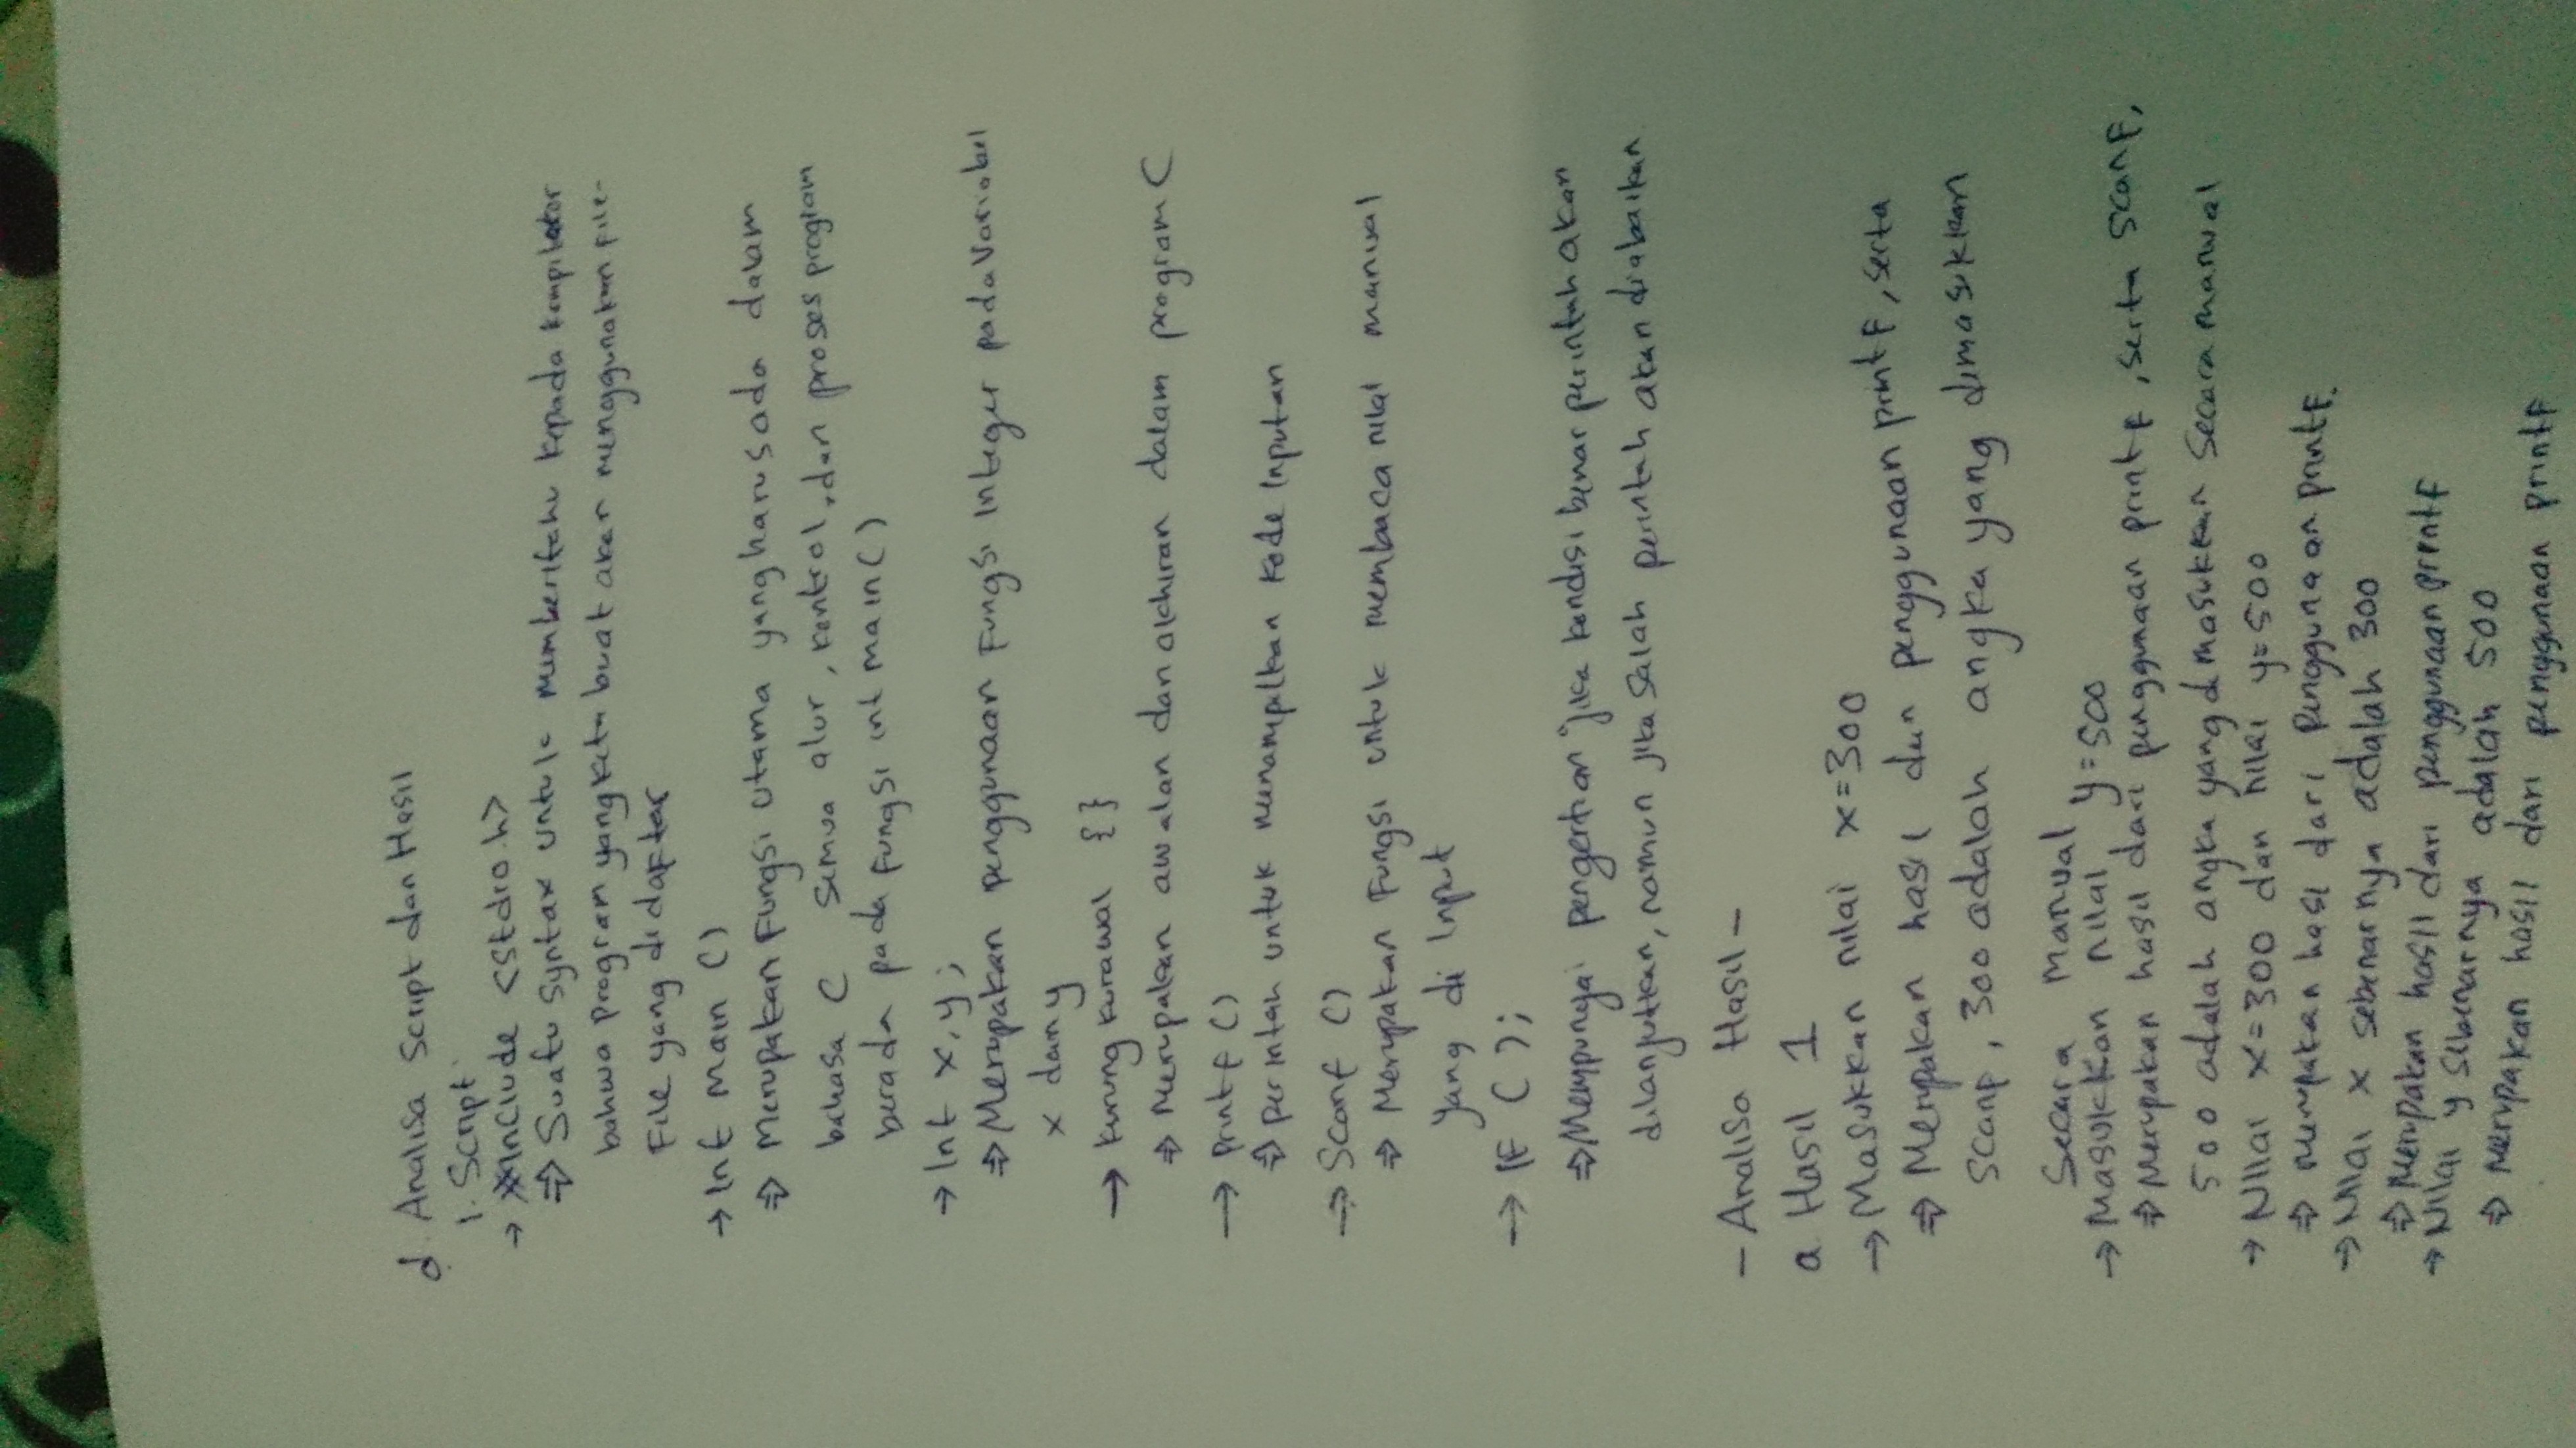 d. Analisa Script dan Hasil
1. Script
→ #include <stdio.h>
⇒ Suatu syntax untuk memberitahu kepada kompilator
bahwa program yang kita buat akan menggunakan file-
File yang di daftar
→ Int main ()
⇒ Merupakan Fungsi utama yang harus ada dalam
bahasa C semua alur, kontrol, dan proses program
berada pada fungsi int main()
→ Int x,y;
⇒ Merupakan penggunaan Fungsi Integer pada Variabel
x dan y
→ kurung kurawal {}
⇒ Merupakan awalan dan akhiran dalam program C
→ printf ()
⇒ perintah untuk menampilkan kode Inputan
→ Scanf ()
⇒ Merupakan Fungsi untuk membaca nilai manual
yang di Input
→ IF ( );
⇒ Mempunyai pengertian "jika kondisi benar perintah akan
dilanjutkan, namun jika salah perintah akan diabaikan
- Analisa Hasil -
a. Hasil 1
→ Masukkan nilai x=300
⇒ Merupakan hasil dan penggunaan printf, serta
scanf, 300 adalah angka yang dimasukkan
Secara Manual
→ Masukkan nilai y=500
⇒ Merupakan hasil dari penggunaan printf, serta scanf,
500 adalah angka yang dimasukkan Secara manual
→ Nilai x=300 dan nilai y=500
⇒ merupakan hasil dari Penggunaan printf.
→ Nilai x sebenarnya adalah 300
⇒ Merupakan hasil dari penggunaan printf
→ Nilai y sebenarnya adalah 500
⇒ Merupakan hasil dari penggunaan printf